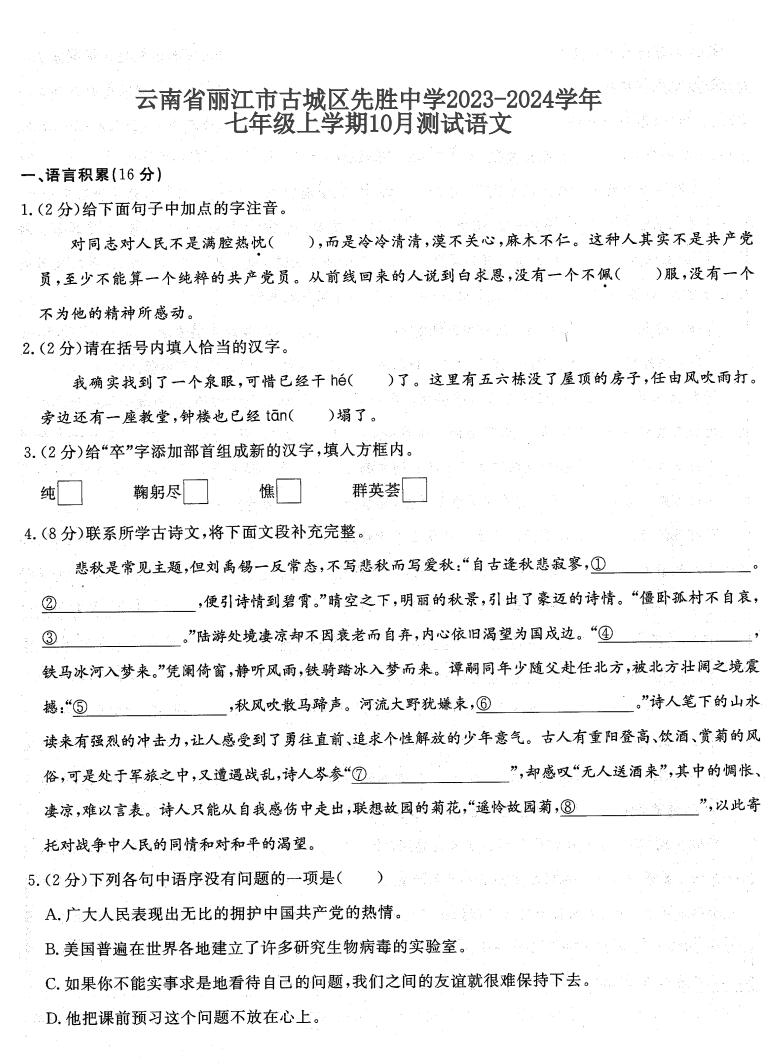 云南省丽江市古城区先胜中学2023-2024学年
七年级上学期10月测试语文
一、语言积累(16分)
1.(2分)给下面句子中加点的字注音。
对同志对人民不是满腔热忱(　　),而是冷冷清清,漠不关心,麻木不仁。这种人其实不是共产党
员,至少不能算一个纯粹的共产党员。从前线回来的人说到白求恩,没有一个不佩(　　)服,没有一个
不为他的精神所感动。
2.(2分)请在括号内填人恰当的汉字。
我确实找到了一个泉眼,可惜已经干hé(　　)了。这里有五六栋没了屋顶的房子,任由风吹雨打。
旁边还有一座教堂,钟楼也已经tān(　　)塌了。
3.(2分)给“卒”字添加部首组成新的汉字,填人方框内。
纯□　　鞠躬尽□　　憔□　　群英荟□
4.(8分)联系所学古诗文,将下面文段补充完整。
悲秋是常见主题,但刘禹锡一反常态,不写悲秋而写爱秋:“自古逢秋悲寂寥,①____________。
②____________,便引诗情到碧霄。”晴空之下,明丽的秋景,引出了豪迈的诗情。“僵卧孤村不自哀,
③____________。”陆游处境凄凉却不因衰老而自弃,内心依旧渴望为国戍边。“④____________,
铁马冰河入梦来。”凭阑倚窗,静听风雨,铁骑踏冰入梦而来。谭嗣同年少随父赴任北方,被北方壮阔之境震
撼:“⑤____________,秋风吹散马蹄声。河流大野犹嫌束,⑥____________。”诗人笔下的山水
读来有强烈的冲击力,让人感受到了勇往直前、追求个性解放的少年意气。古人有重阳登高、饮酒、赏菊的风
俗,可是处于军旅之中,又遭遇战乱,诗人岑参“⑦____________”,却感叹“无人送酒来”,其中的惆怅、
凄凉,难以言表。诗人只能从自我感伤中走出,联想故园的菊花,“遥怜故园菊,⑧____________”,以此寄
托对战争中人民的同情和对和平的渴望。
5.(2分)下列各句中语序没有问题的一项是(　　)
A.广大人民表现出无比的拥护中国共产党的热情。
B.美国普遍在世界各地建立了许多研究生物病毒的实验室。
C.如果你不能实事求是地看待自己的问题,我们之间的友谊就很难保持下去。
D.他把课前预习这个问题不放在心上。